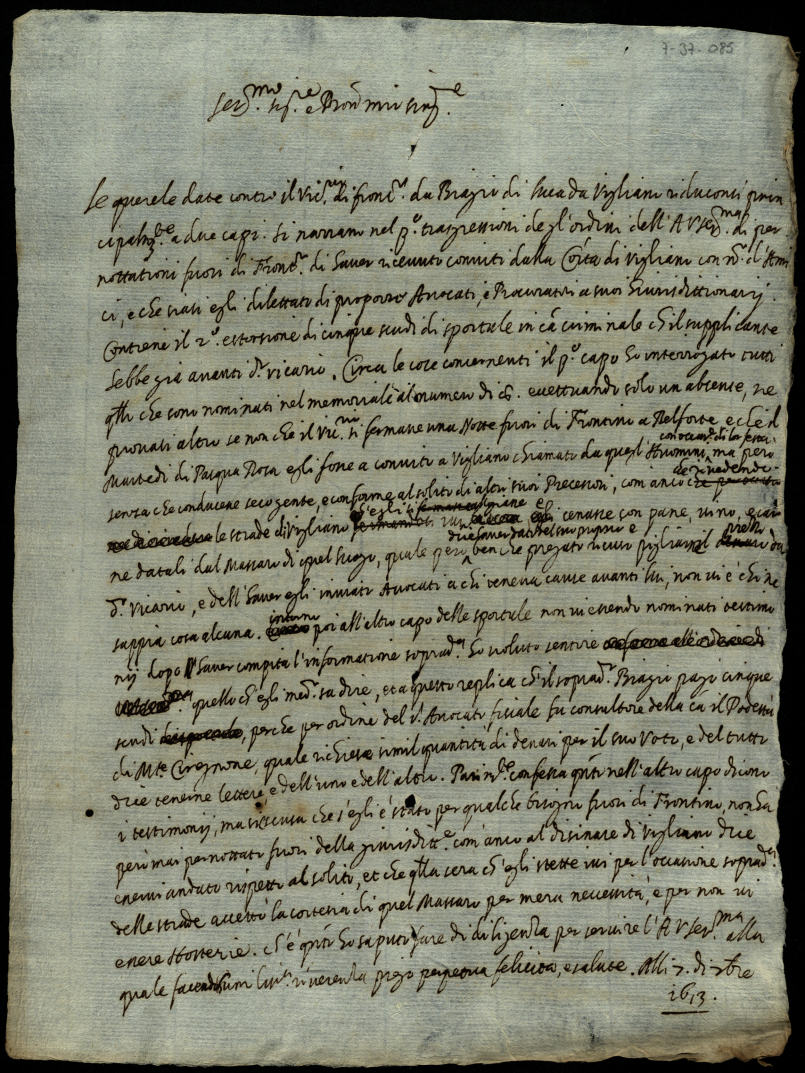 7-37-085
Ser.mo Sig.re e Pron mio sing.e
Le querele date contro il Vic.rio di Front.o da Biagio di Luca da Vigliano riduconsi prin
cipalm.te a due capi. Si narrano nel p.o trasgressioni degl'ordini dell'A V Ser.ma di per
nottationi fuori di Front.o di haver ricevuto conviti dalla Cōità di Vigliano con n.o d'Ami
ci, e che siasi egli dilettato di proporre Avocati, e Procuratori a suoi Giurisdittionarij.
Contiene il 2.o estorsione di cinque scudi di sportule in cā criminale ch'il supplicante
hebbe già avanti d.o vicario. Circa le cose concernenti il p.o capo ho interrogato tutti
q̄lli che sono nominati nel memoriale al numero di eccettuando solo un absente, ne
provasi altro se non che il Vic.rio si fermasse una Notte fuori di Frontino a Belforte, e che il
Martedì di Pasqua Rosa egli fosse a convito a Vigliano chiamato da quegl'Huomini, ma però
senza che conducesse seco gente, e conforme al solito di altri suoi Precessori, com'anco
rivedendo
le strade di Vigliano s'egli si ivi e cenasse con pane, vino, e car
ne datali dal Massaro di quel luogo, quale però benche pregato ricusò pigliarne il prezzo da
d.o Vicario, e dell'haver egli inviati Avocati a chi teneva cause avanti lui, non vi è chi ne
sappia cosa alcuna. intorno poi all'altro capo delle sportule non vi essendo nominati testimo
nij dopo l'haver compita l'informatione soprad.a ho voluto sentire
quello ch'egli med.o sa dire, et a questo replica ch'il soprad.o Biagio pagò cinque
scudi, perche per ordine del s.r Avocato fiscale fu consultore della cā il Podestà
di M.te Cirignone, quale richiese simil quantità di denari per il suo Voto, e del tutto
dice tenerne lettere e dell'uno e dell'altro. Parim.te confessa q̄nto nell'altro capo dicono
i testimonij, ma si scusa che s'egli è stato per qualche bisogno fuori di Frontino, non ha
però mai pernottato fuori della giurisditt.e com'anco al disinare di Vigliano dice
esservi andato rispetto al solito, et che q̄lla sera ch'egli stette ivi per l'occasione soprad.a
delle strade accettò la cortesia di quel Massaro per mera necessità, e per non vi
essere Hosterie. Ch'è q̄nto ho saputo fare di diligenza per servire l'A V Ser.ma alla
quale facendo riverenza prego perpetua felicità, e salute. Alli 7. di 7bre
1613.